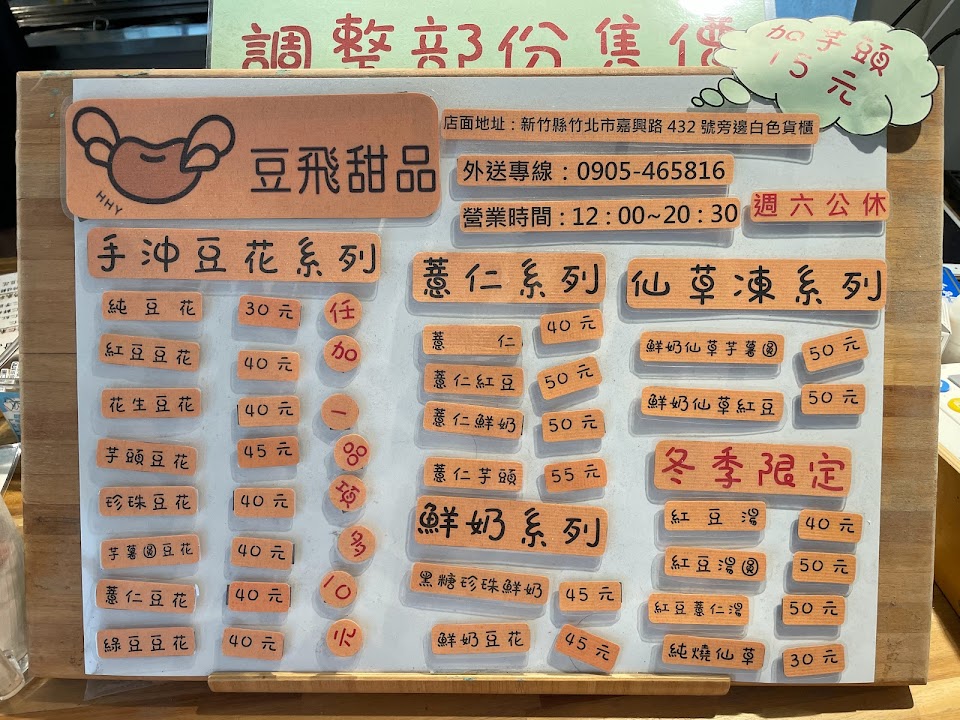 調整部份售價
加芋頭
15元
豆飛甜品
HHY
店面地址：新竹縣竹北市嘉興路 432 號旁邊白色貨櫃
外送專線：0905-465816
營業時間：12：00~20：30
週六公休
手沖豆花系列
純豆花 30元
紅豆豆花 40元
花生豆花 40元
芋頭豆花 45元
珍珠豆花 40元
芋薯圓豆花 40元
薏仁豆花 40元
綠豆豆花 40元
任加一品項多10元
薏仁系列
薏仁 40元
薏仁紅豆 50元
薏仁鮮奶 50元
薏仁芋頭 55元
鮮奶系列
黑糖珍珠鮮奶 45元
鮮奶豆花 45元
仙草凍系列
鮮奶仙草芋薯圓 50元
鮮奶仙草紅豆 50元
冬季限定
紅豆湯 40元
紅豆湯圓 50元
紅豆薏仁湯 50元
純燒仙草 30元